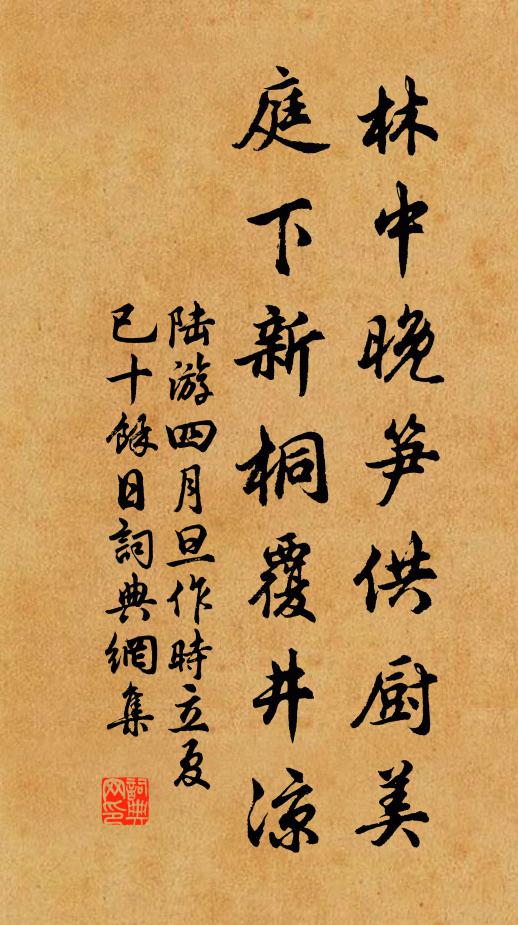 林中晚笋供厨美
庭下新桐覆井凉
陆游四月旦作時立夏
已十餘日詞典網集
詞典
网印